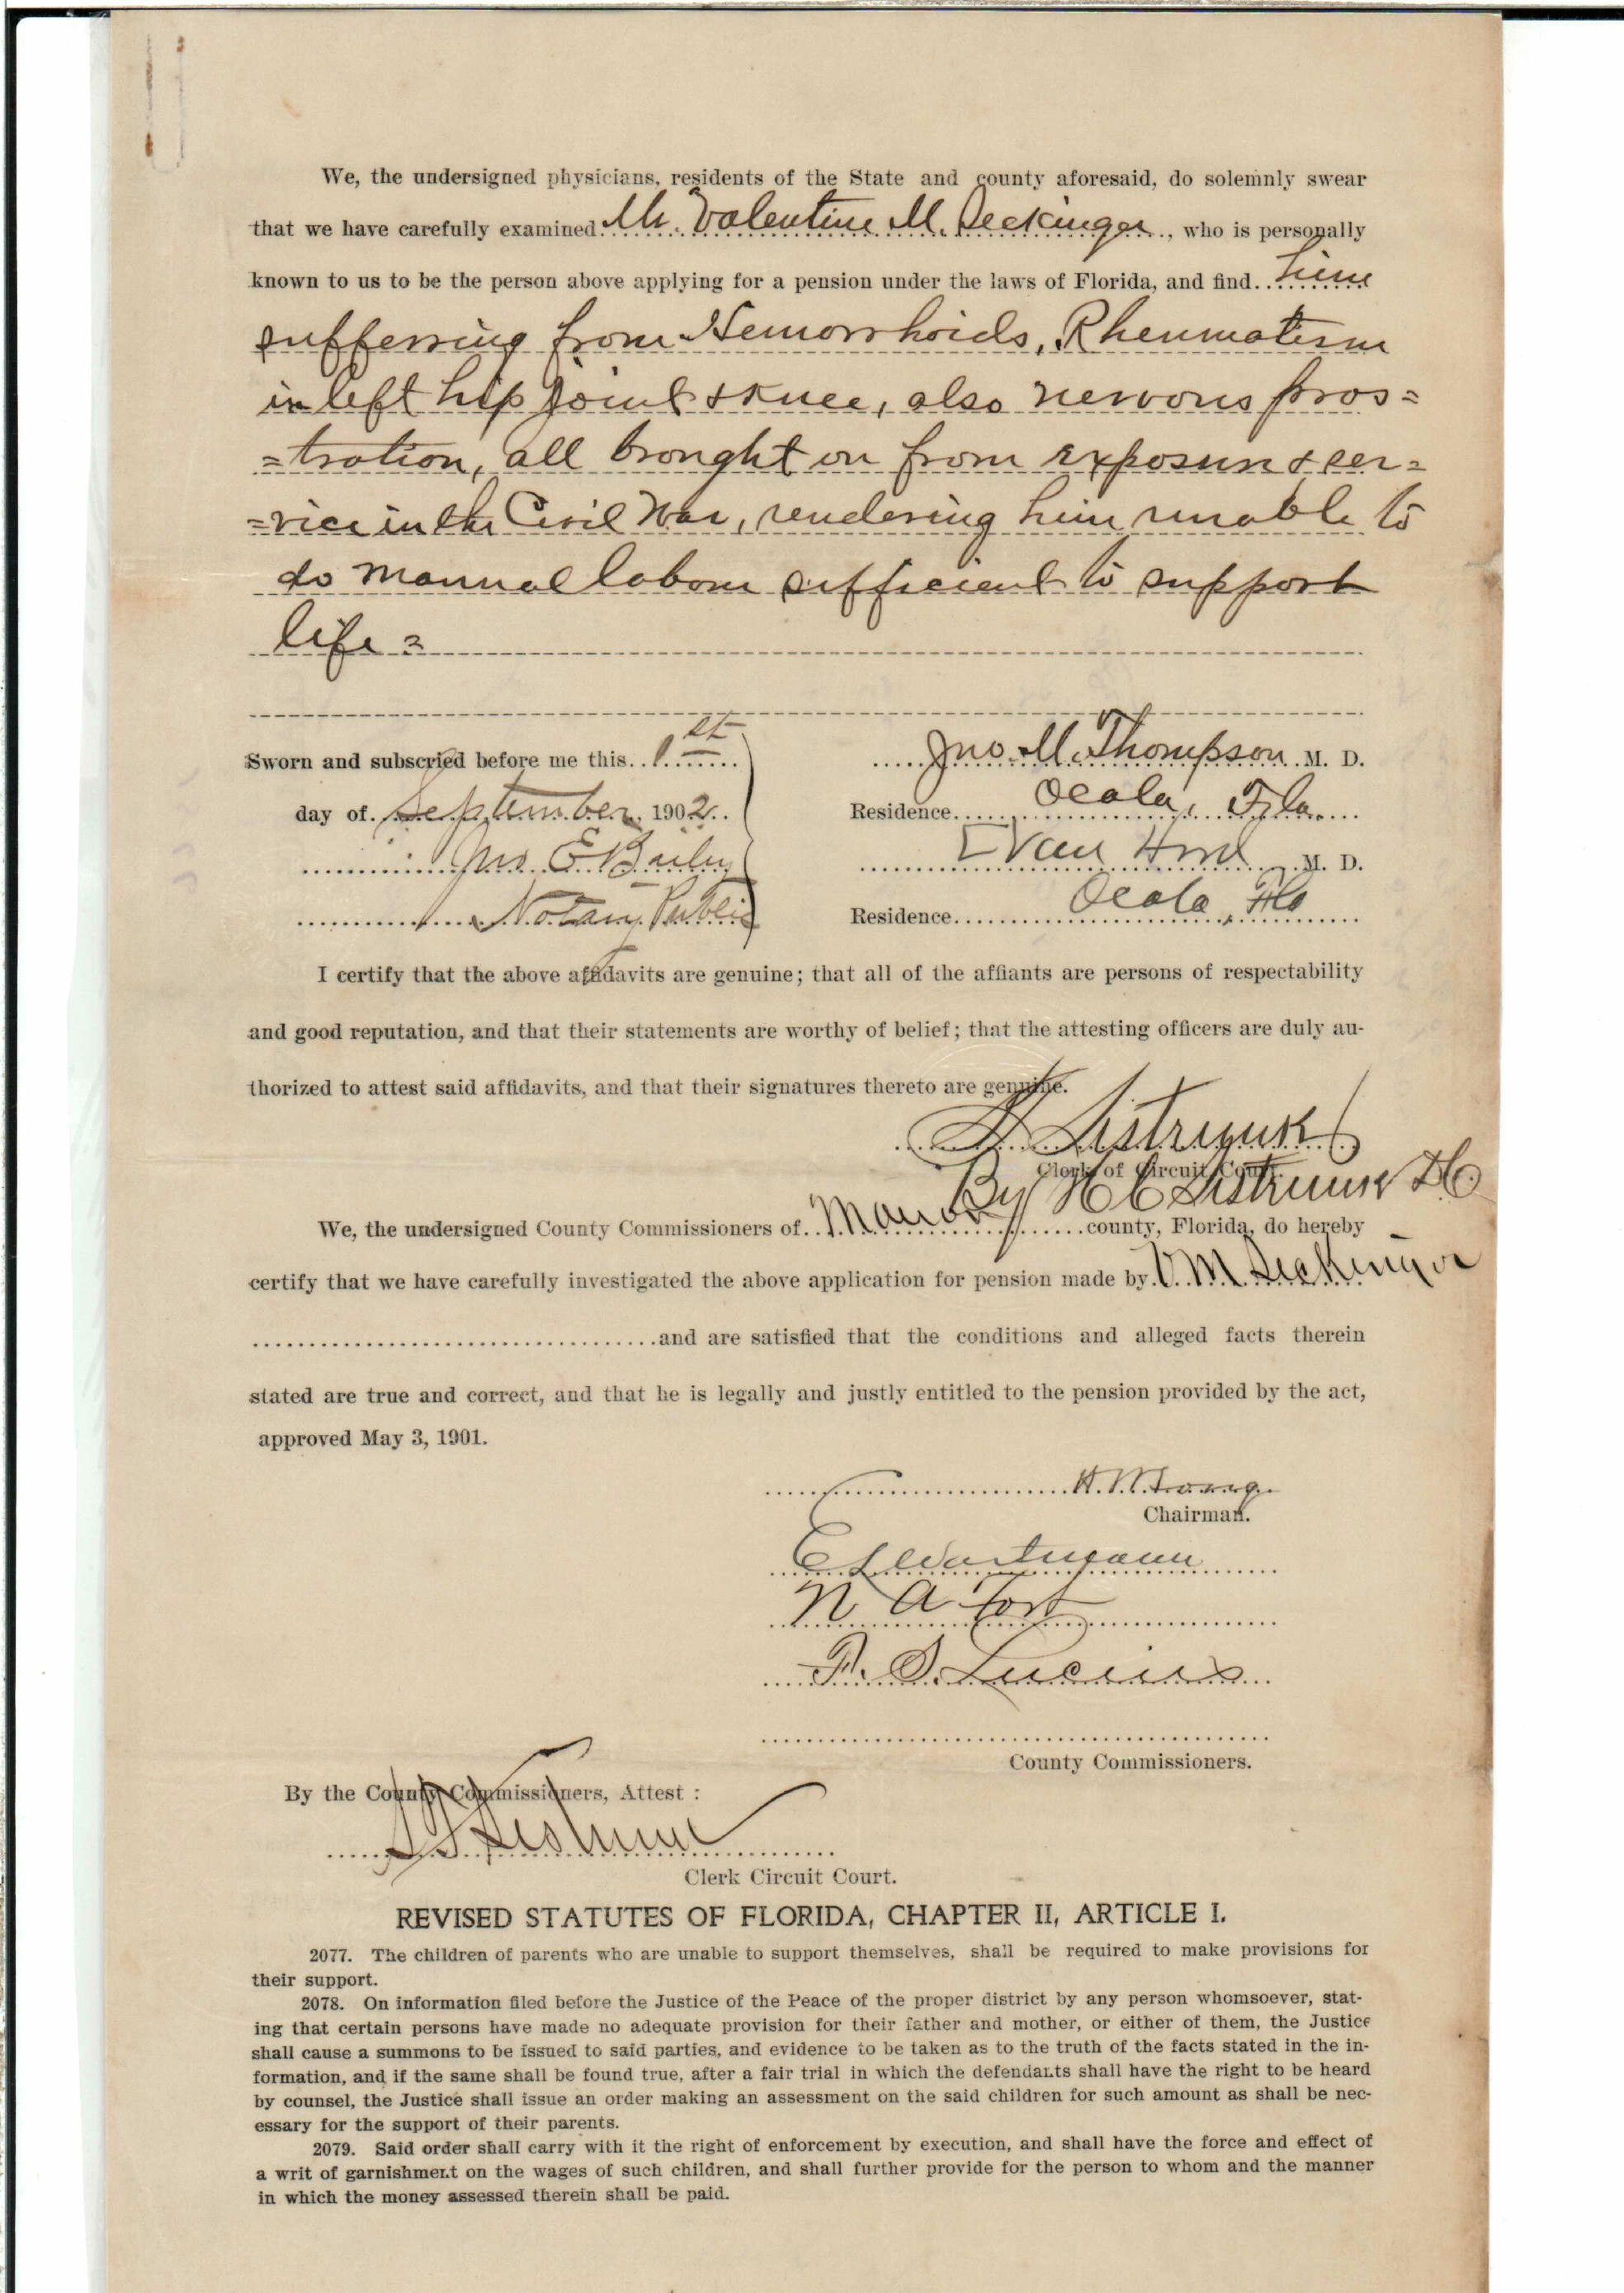 We, the undersigned physicians, residents of the State and county aforesaid, do solemnly swear
that we have carefully examined Mr. Valentine M. Seckinger, who is personally
known to us to be the person above applying for a pension under the laws of Florida, and find him
sufferring from Hemorrhoids, Rheumatism
in left hip joint & knee, also nervous pros=
=tration, all brought on from exposure & ser=
=vice in the Civil War, rendering him unable to
do manual labour sufficient to support
life =
Sworn and subscried before me this 1st
day of September, 1902
Jno. E Baily
Notary Public
Jno. M. Thompson M. D.
Residence Ocala, Fla.
E Van Hood M. D.
Residence Ocala, Fla
I certify that the above affidavits are genuine; that all of the affiants are persons of respectability
and good reputation, and that their statements are worthy of belief; that the attesting officers are duly au-
thorized to attest said affidavits, and that their signatures thereto are genuine.
Sistrunk
Clerk of Circuit Court.
By H C Sistrunk DC
We, the undersigned County Commissioners of Marion county, Florida, do hereby
certify that we have carefully investigated the above application for pension made by V. M Seckinger
and are satisfied that the conditions and alleged facts therein
stated are true and correct, and that he is legally and justly entitled to the pension provided by the act,
approved May 3, 1901.
Chairman.
E L Wartmann
N A Fort
P. S. Lucius
County Commissioners.
By the County Commissioners, Attest :
Sistrunk
Clerk Circuit Court.
REVISED STATUTES OF FLORIDA, CHAPTER II, ARTICLE I.
2077. The children of parents who are unable to support themselves, shall be required to make provisions for
their support.
2078. On information filed before the Justice of the Peace of the proper district by any person whomsoever, stat-
ing that certain persons have made no adequate provision for their father and mother, or either of them, the Justice
shall cause a summons to be issued to said parties, and evidence to be taken as to the truth of the facts stated in the in-
formation, and if the same shall be found true, after a fair trial in which the defendants shall have the right to be heard
by counsel, the Justice shall issue an order making an assessment on the said children for such amount as shall be nec-
essary for the support of their parents.
2079. Said order shall carry with it the right of enforcement by execution, and shall have the force and effect of
a writ of garnishment on the wages of such children, and shall further provide for the person to whom and the manner
in which the money assessed therein shall be paid.